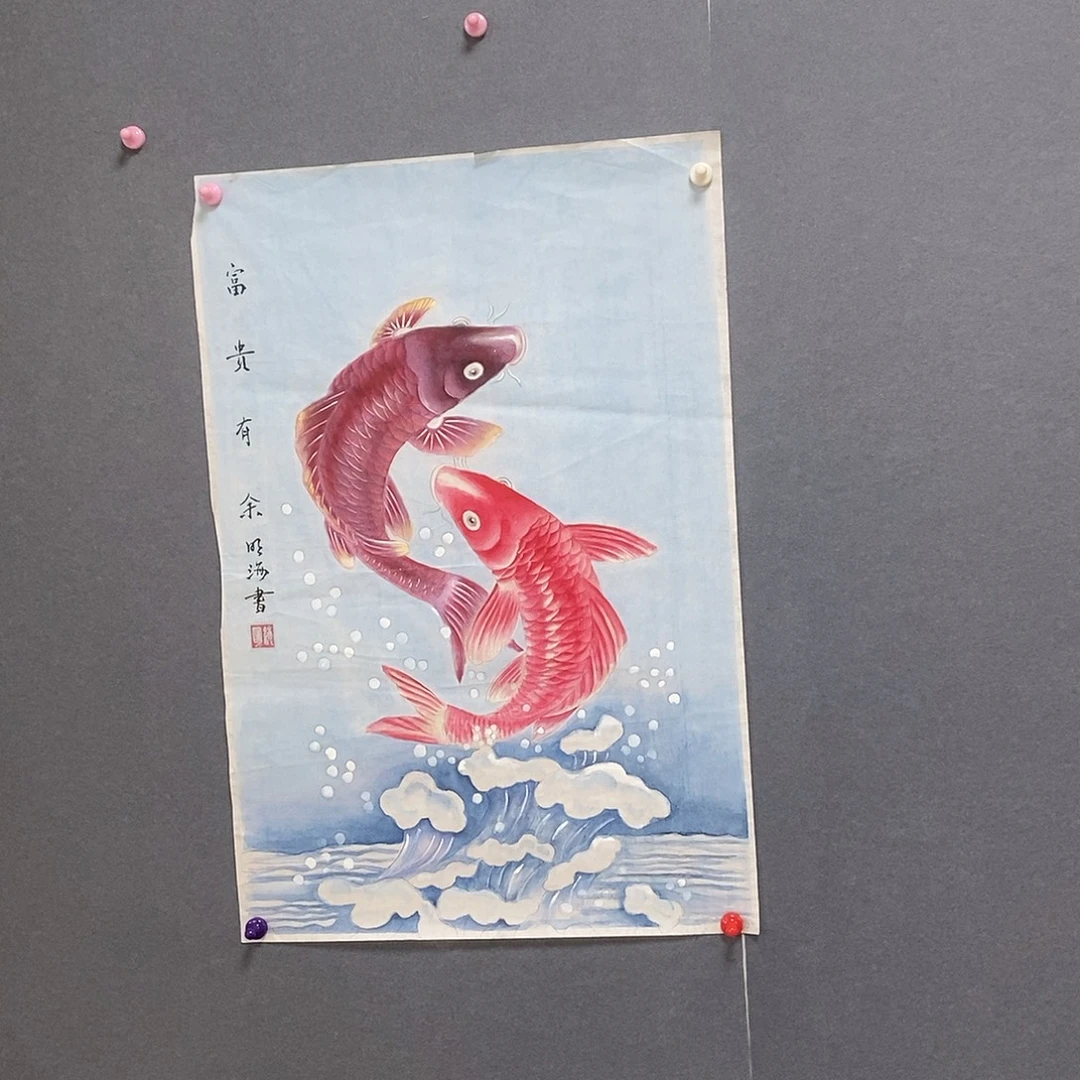 富贵有余
明海書